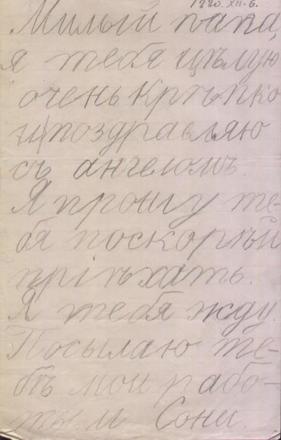 1920.XII.6.
Милый папа,
я тебя цѣлую
очень крѣпко
и поздравляю
съ ангеломъ.
Я прошу те-
бя поскорѣй
пріѣхать.
Я тебя жду.
Посылаю те-
бѣ мои рабо-
ты и Сони.